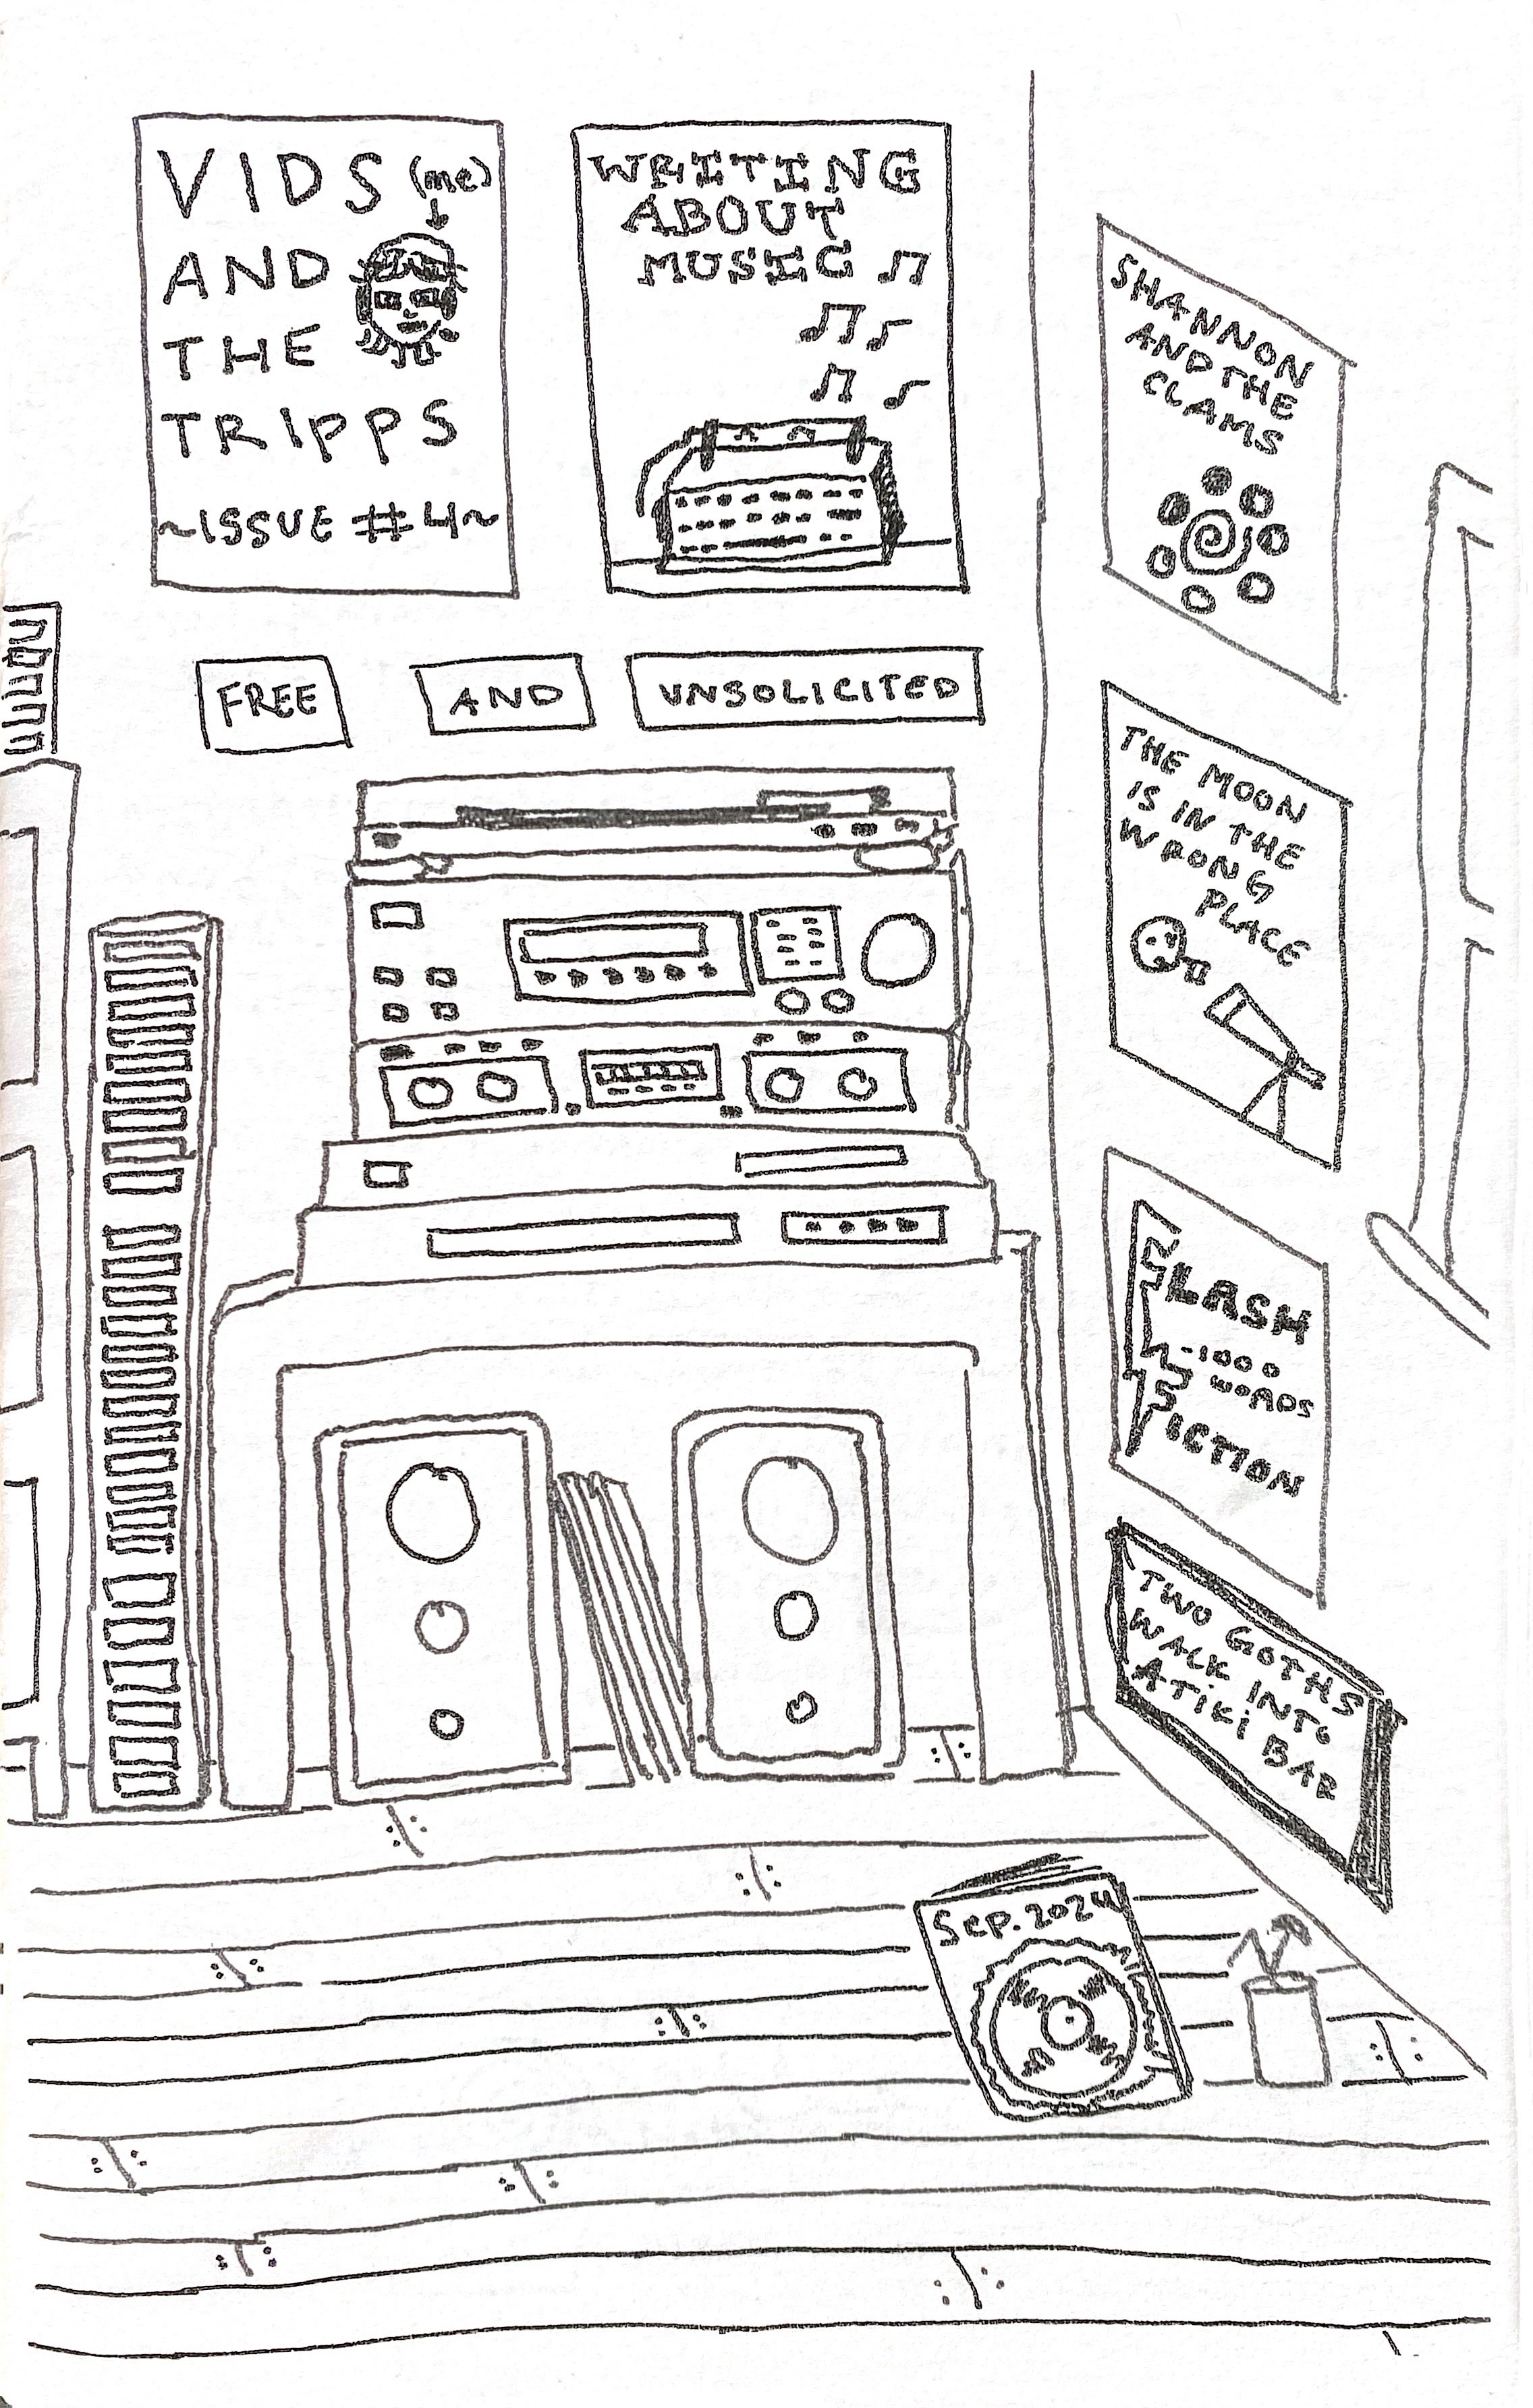 VIDS (me)
AND
THE
TRIPPS
~ISSUE #4~
WRITING
ABOUT
MUSIC
FREE AND UNSOLICITED
SHANNON
AND THE
CLAMS
THE MOON
IS IN THE
WRONG
PLACE
FLASH
4-1000
WORDS
FICTION
TWO GOTHS
WALK INTO
A TIKI BAR
Sep. 2024